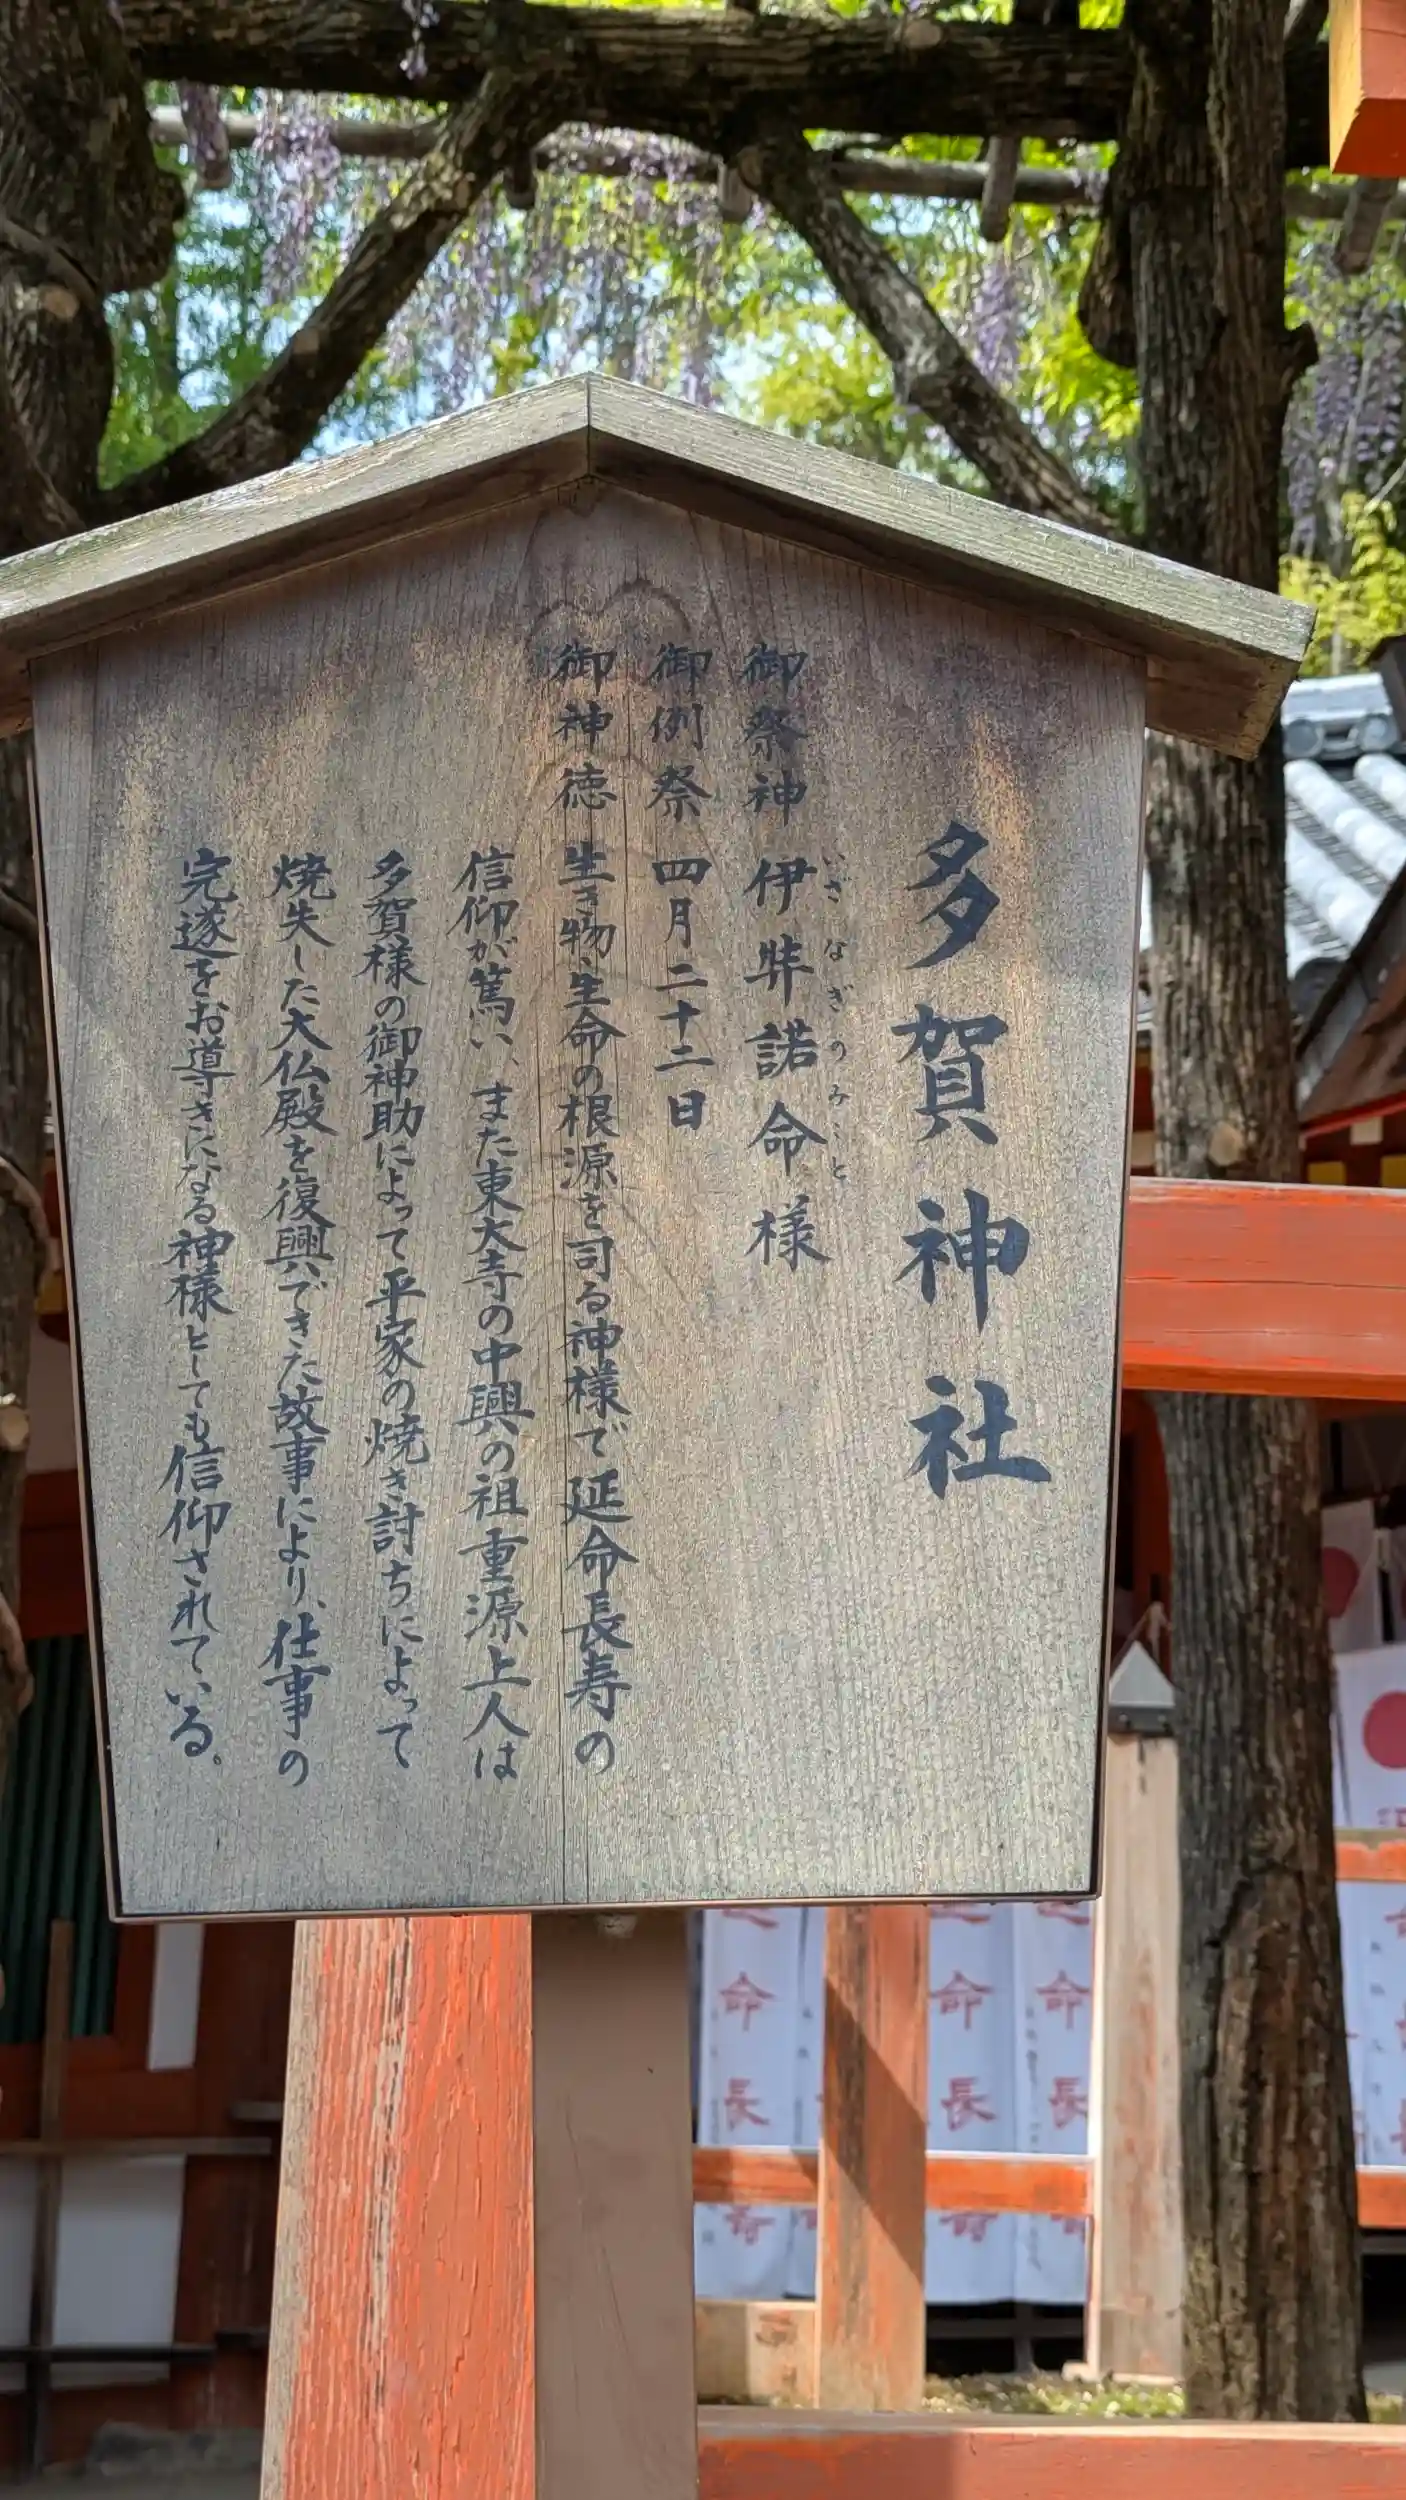 多賀神社
御祭神 伊弉諾命様
いざなぎのみこと
御例祭 四月二十二日
御神徳 生き物、生命の根源を司る神様で延命長寿の
信仰が篤い、また東大寺の中興の祖重源上人は
多賀様の御神助によって平家の焼き討ちによって
焼失した大仏殿を復興できた故事により、仕事の
完遂をお導きになる神様としても信仰されている。
命長寿
命長寿
命長寿